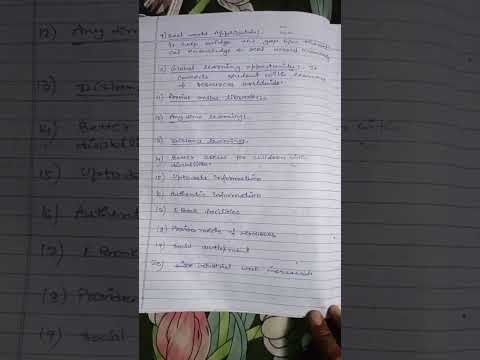 9) Real world Application.
It help bridge the gap b/w
cal knowledge & real world
10) Global learning opportunities: It
Connects student with learning
& resources worldwide.
11) Provide online libraries.
12) Any time learning.
13) Distance learning.
14) Better access for children with
disabilities.
15) Uptodate Information
16) Authentic Information
17) E-Book facilities
18) Provide of resources
19) Social development
20) Industrial work
12) Any time
13) Distan
14) Better
disabili
15) Uptoda
16) Authent
17) E Book
18) Provide
19) Social